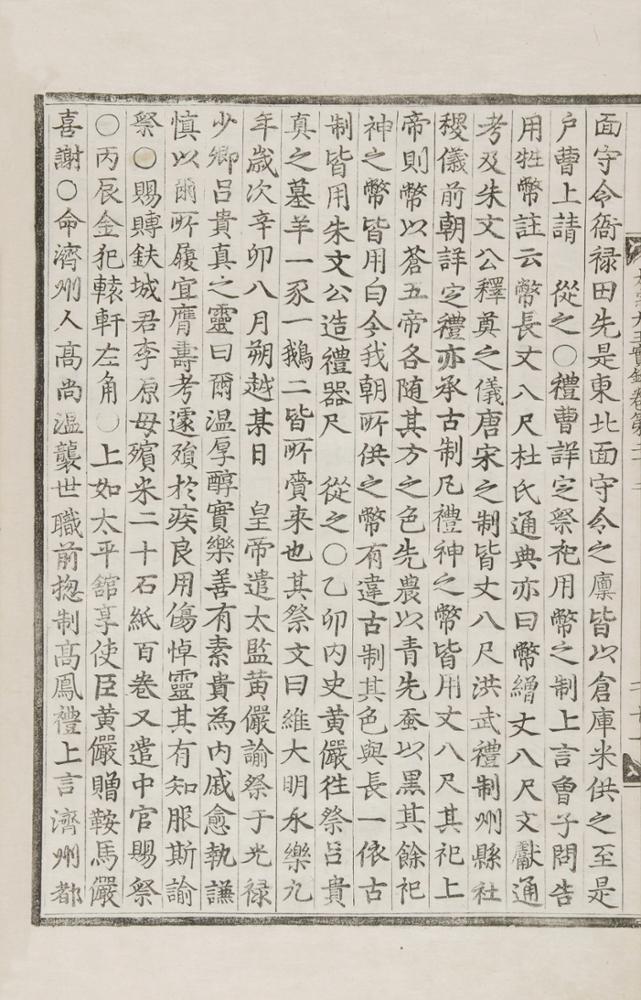 面守令衙祿田先是東北面守令之廪皆以倉庫米供之至是
户曹上請　從之○禮曹詳定祭祀用幣之制上言曾子問告
用牲幣註云幣長丈八尺杜氏通典亦曰幣繒丈八尺文獻通
考及朱文公釋奠之儀唐宋之制皆丈八尺洪武禮制州縣社
稷儀前朝詳定禮亦承古制凡禮神之幣皆用丈八尺其祀上
帝則幣以蒼五帝各随其方之色先農以青先蚕以黑其餘祀
神之幣皆用白今我朝所供之幣有違古制其色與長一依古
制皆用朱文公造禮器尺　從之○乙卯内史黄儼徃祭吕貴
真之墓羊一豕一鵝二皆所賫来也其祭文曰維大明永樂九
年歲次辛卯八月朔越某日　皇帝遣太監黄儼諭祭于光禄
少卿吕貴真之靈曰爾温厚醇實樂善有素貴為内戚愈執謙
慎以爾所履宜膺壽考遽殞於疾良用傷悼靈其有知服斯諭
祭○賜賻鈇城君李原母殯米二十石紙百卷又遣中官賜祭
○丙辰金犯轅軒左角○上如太平舘享使臣黄儼贈鞍馬儼
喜謝○命濟州人髙尚温襲世職前捴制髙鳳禮上言濟州都